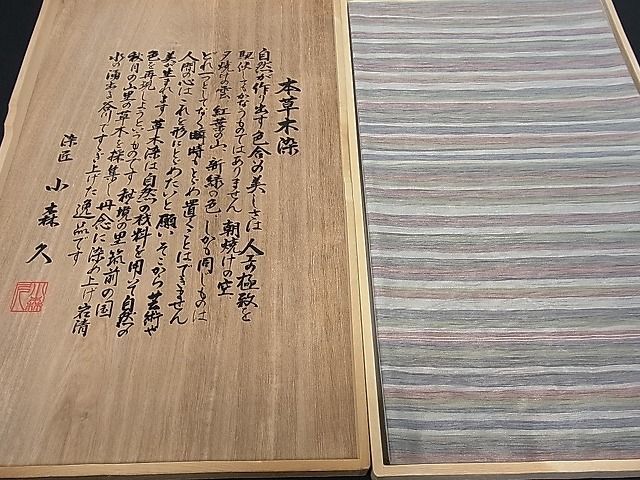 本草木染
自然が作り出す色合の美しさは 人工の極致を
駆使してもかなうものではありません 朝焼けの空
夕焼けの雲 紅葉の山 新緑の色 しかも同じものは
どれ一つとしてなく瞬時もとめ置くことはできません
人間の心はこれを形にとどめたいと願いそこから芸術や
美が生まれます 草木染は自然の材料を用いて自然の
色を再現しようというものです 秘境の里筑前の国
秋月の山里の草木を採集し丹念に染め上げ岩清
水の湧き出る谷川ですすぎ上げた逸品です
染匠 小森久